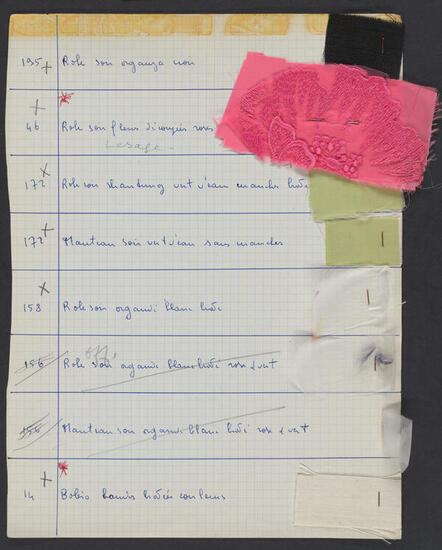 195 + Robe soir organza noir
+
46 Robe soir fleurs roses
Lesage -
172 x Robe soir shantung vert d'eau manches
172 + Manteau soir vert d'eau sans manches
x
158 Robe soir organdi blanc brodé
156 Robe soir organdi blanc brodé rose & vert
156 Manteau soir organdi blanc brodé rose & vert
+
14 brodée couleurs